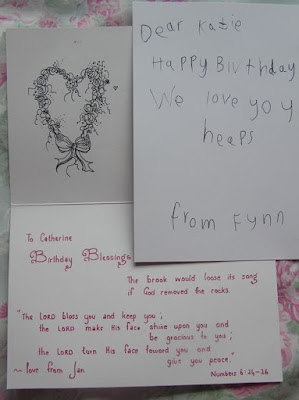 Dear Katie
Happy Birthday
We love you
heaps
from Fynn
To Catherine
Birthday Blessings
The brook would loose its song
if God removed the rocks.
"The LORD bless you and keep you;
the LORD make His face shine upon you and
be gracious to you;
the LORD turn His face toward you and
give you peace."
~ love from Jan
Numbers 6:24-26